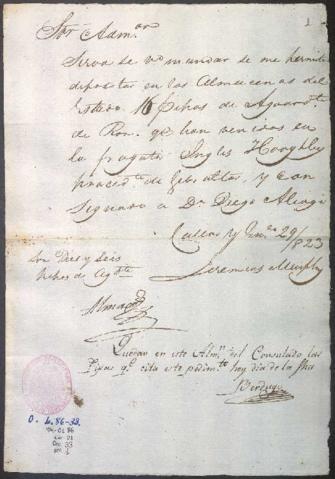 Sor Admor
Sirva se vm mandar se me permita
depositar en los Almacenes del
Estado 16 Pipas de Aguarte
de Ron, qe han venido en
la fragata Inglesa
procede de Gibraltar, y con
signado a Dn Diego Aliaga
Callao y Enero 29/823
Son Dies y seis
de Agte
Jeremias Murphy
Quedan en este Almn del Consulado las
Pipas qe cita este pedimto hoy dia de la fha
Berdugo
O.L. 86-33